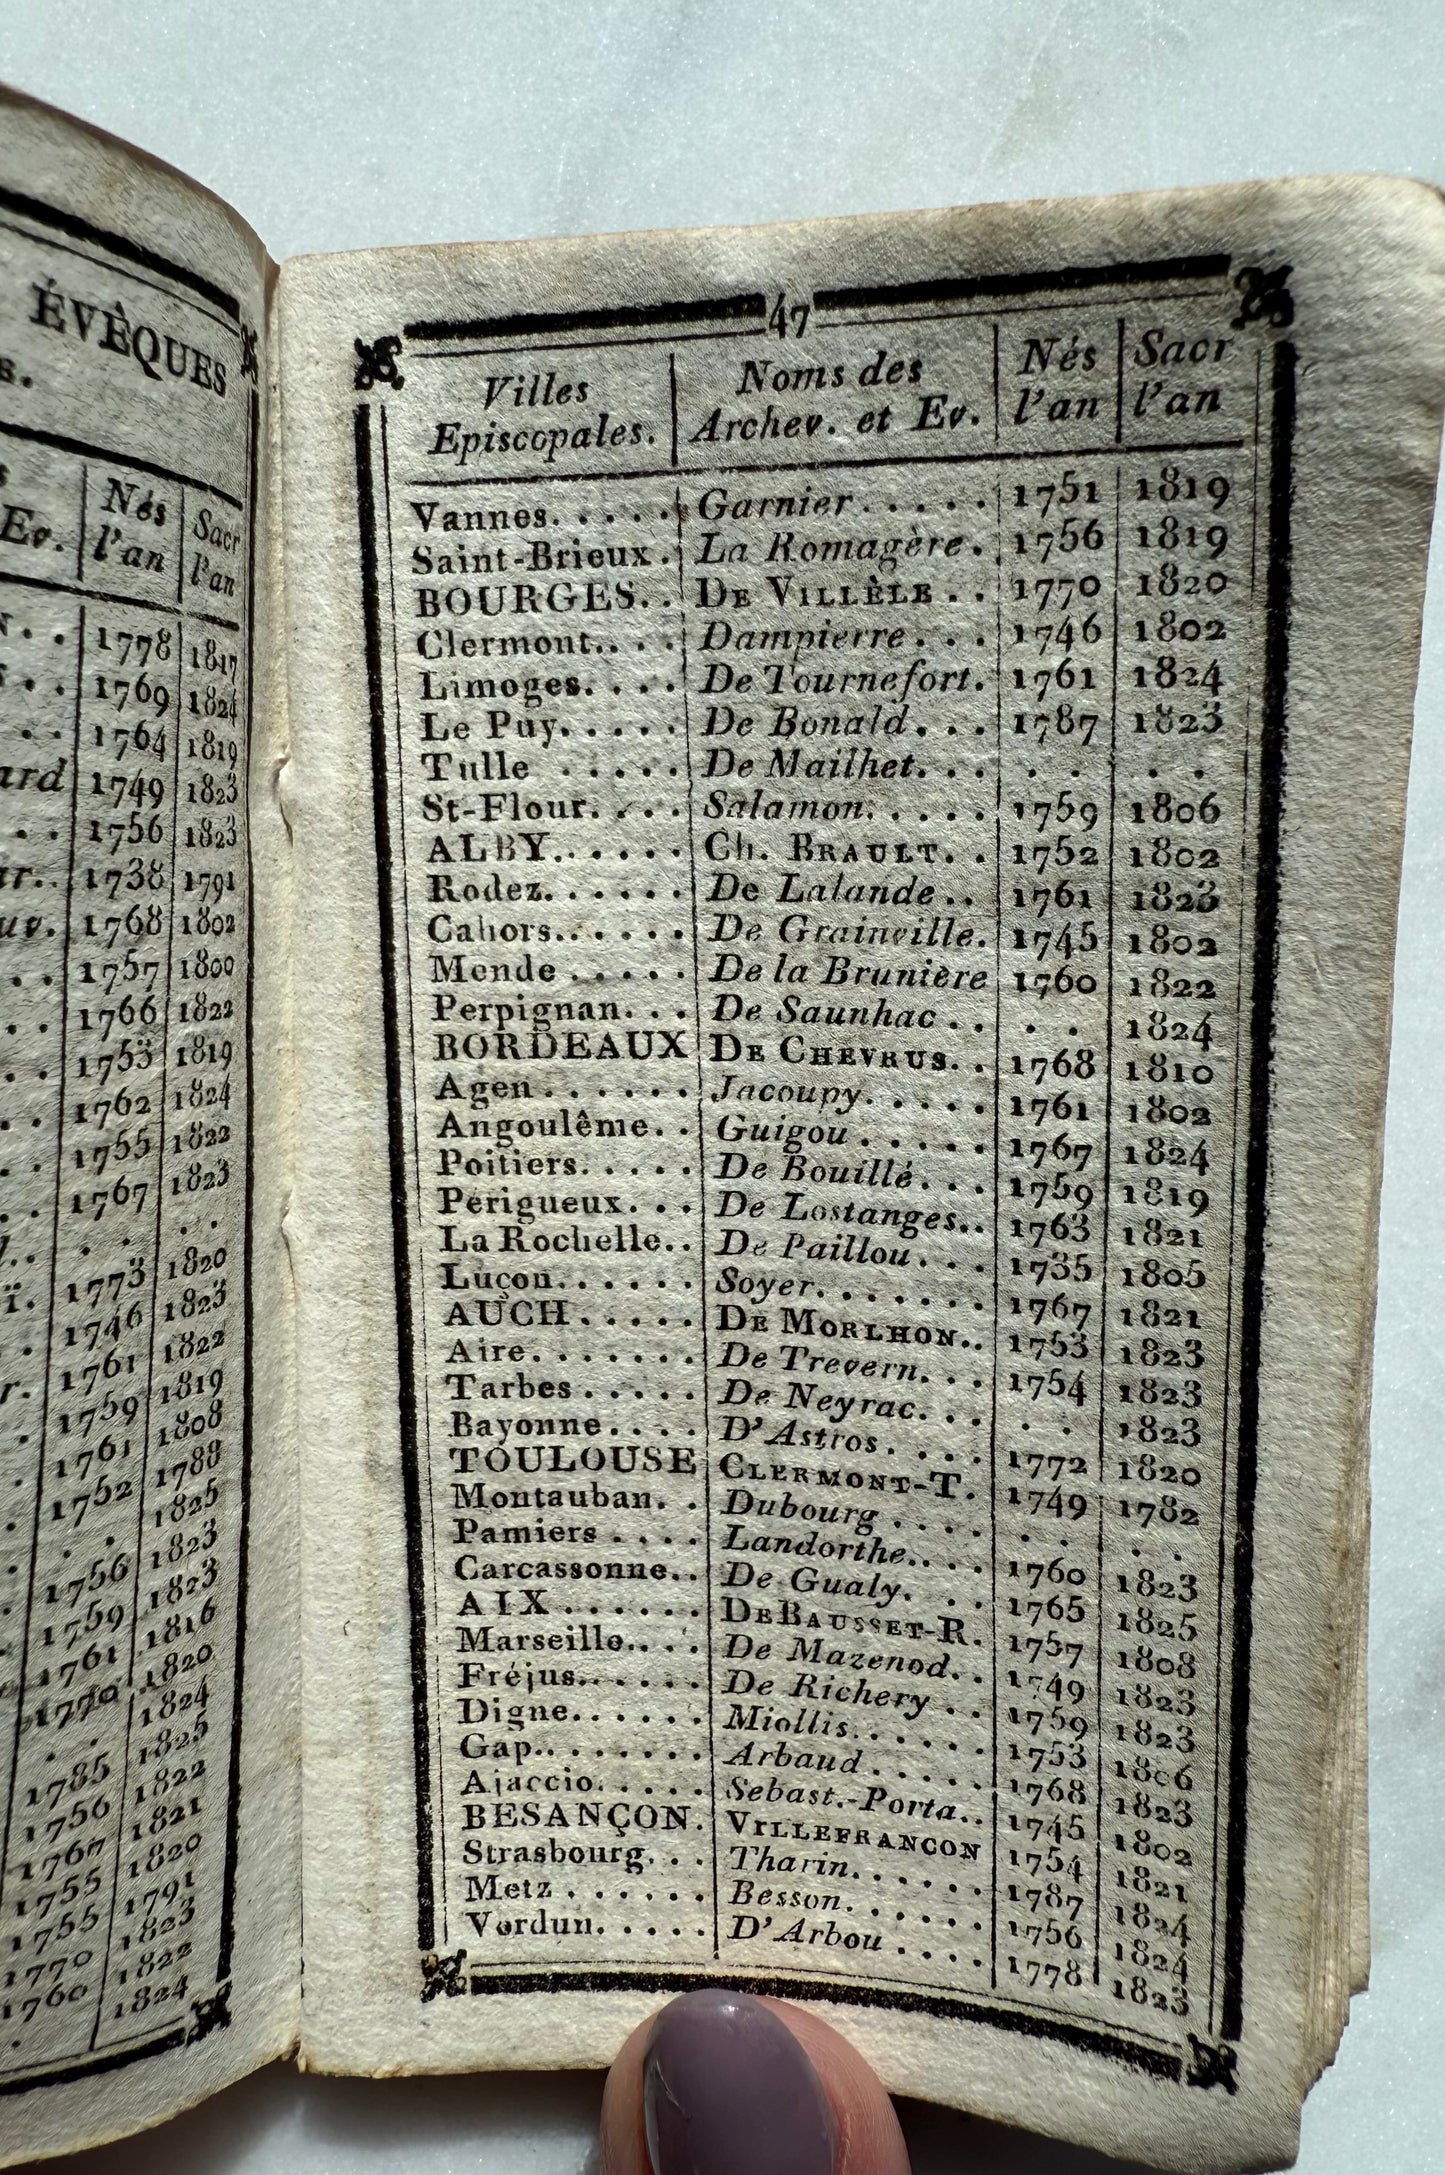 ÉVÊQUES
Ev. Nés l'an Sacr l'an
1778 1817
1769 1824
1764 1819
ard 1749 1823
1756 1823
1738 1791
1768 1802
1757 1800
1766 1822
1753 1819
1762 1824
1755 1822
1767 1823
. . . .
1773 1820
1746 1823
1761 1822
1759 1819
1761 1808
1752 1788
. . 1825
1756 1823
1759 1823
1761 1816
1770 1820
. . 1824
1785 1825
1756 1822
1767 1821
1755 1820
1755 1791
1770 1823
1760 1822
. 1824
47
Villes Episcopales. Noms des Archev. et Ev. Nés l'an Sacr l'an
Vannes..... Garnier..... 1751 1819
Saint-Brieux. La Romagère. 1756 1819
BOURGES.. DE VILLÈLE.. 1770 1820
Clermont.... Dampierre... 1746 1802
Limoges.... De Tournefort. 1761 1824
Le Puy..... De Bonald... 1787 1823
Tulle ..... De Mailhet... . . . .
St-Flour.... Salamon..... 1759 1806
ALBY...... Ch. BRAULT.. 1752 1802
Rodez...... De Lalande.. 1761 1823
Cahors...... De Grainville. 1745 1802
Mende ..... De la Brunière 1760 1822
Perpignan... De Saunhac.. . . 1824
BORDEAUX DE CHEVRUS.. 1768 1810
Agen...... Jacoupy..... 1761 1802
Angoulême.. Guigou..... 1767 1824
Poitiers..... De Bouillé... 1759 1819
Périgueux... De Lostanges.. 1763 1821
La Rochelle.. De Paillou... 1735 1805
Luçon...... Soyer....... 1767 1821
AUCH..... DE MORLHON.. 1753 1823
Aire....... De Trevern... 1754 1823
Tarbes..... De Neyrac... . . 1823
Bayonne.... D'Astros.... 1772 1820
TOULOUSE CLERMONT-T. 1749 1782
Montauban.. Dubourg.... . . . .
Pamiers.... Landorthe.... 1760 1823
Carcassonne.. De Gualy... 1765 1825
AIX...... DE BAUSSET-R. 1757 1808
Marseille.... De Mazenod.. 1749 1823
Fréjus...... De Richery.. 1759 1823
Digne...... Miollis...... 1753 1806
Gap........ Arbaud..... 1768 1823
Ajaccio..... Sebast.-Porta.. 1745 1802
BESANÇON. VILLEFRANCON 1754 1821
Strasbourg... Tharin...... 1787 1824
Metz...... Besson...... 1756 1824
Verdun..... D'Arbou.... 1778 1823